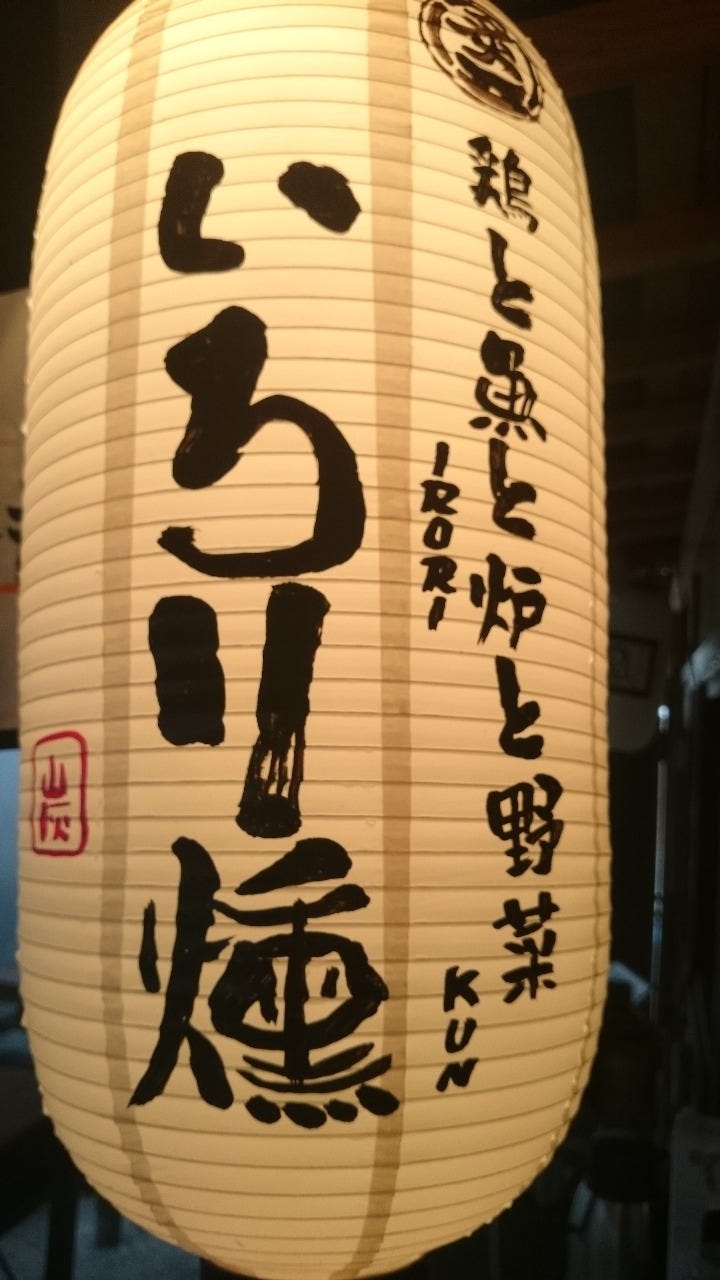 鶏と魚と炉と野菜
IRORI
KUN
いろり燻
炭